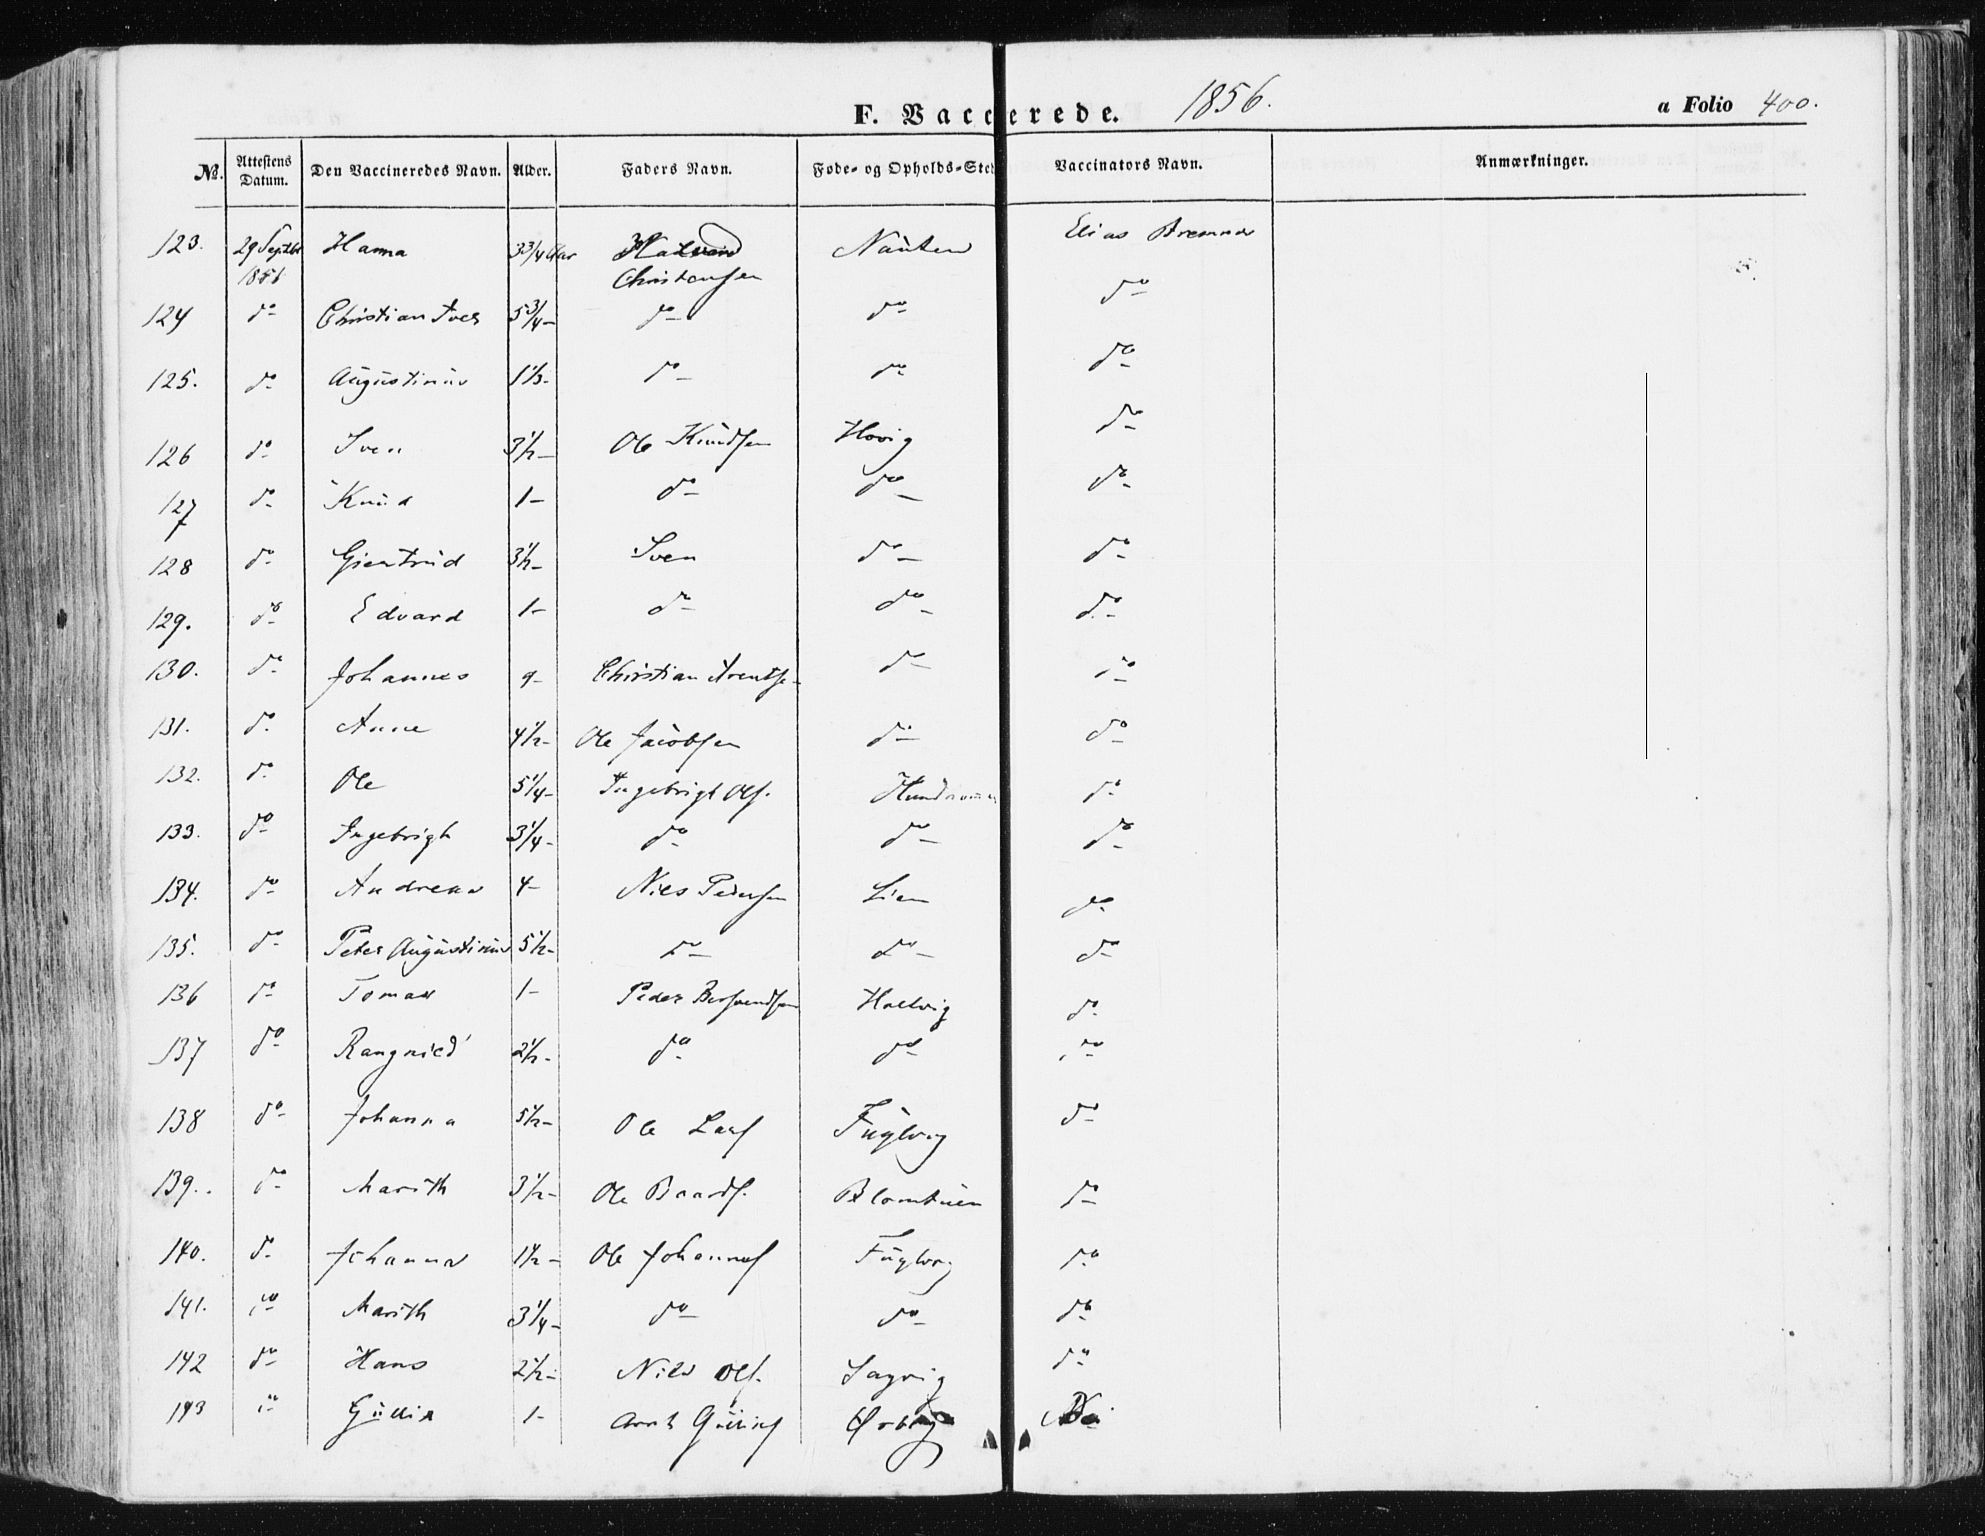 F. Vaccinerede. 1856. a Folio 400.
No. Attestens Datum. Den Vaccineredes Navn. Alder. Faders Navn. Føde- og Opholds-Sted Vaccinators Navn. Anmærkninger.
123. 29 Septbr 1856 Hanna 3 3/4 Aar Christensen Nausten Elias Bremnes
124 do Christian Iver 5 3/4 - do do do
125. do Augustinus 1 1/3 - do do do
126 do Sven 3 1/2 - Ole Knudsen Hovig do
127 do Knud 1 - do do do
128 do Giertrud 3 1/2 - Sven do do
129. do Edvard 1 - do do do
130. do Johannes 9 - Christian Arentse- do do
131. do Anne 4 1/2 - Ole Jacobsen do do
132. do Ole 5 1/4 - Ingebrigt Ols. do
133. do Ingebrigt 3 1/4 - do do do
134. do Andreas 4 - Niels Pedersen Lien do
135. do Peter Augustinus 5 1/2 - do do do
136 do Tomas 1 - Peder do
137 do Rangnild 2 1/2 - do do do
138 do Johanna 5 1/2 - Ole Lars Fuglvog do
139. do Marith 3 1/2 - Ole Baards. Blomtuen do
140. do Johanna 1 1/2 - Ole Johannes Fuglvog do
141. do Marith 3 1/4 - do do do
142 do Hans 2 1/2 - Nils Ols. Sagvig do
143 do Gullik 1 - Arnt Gulliks do